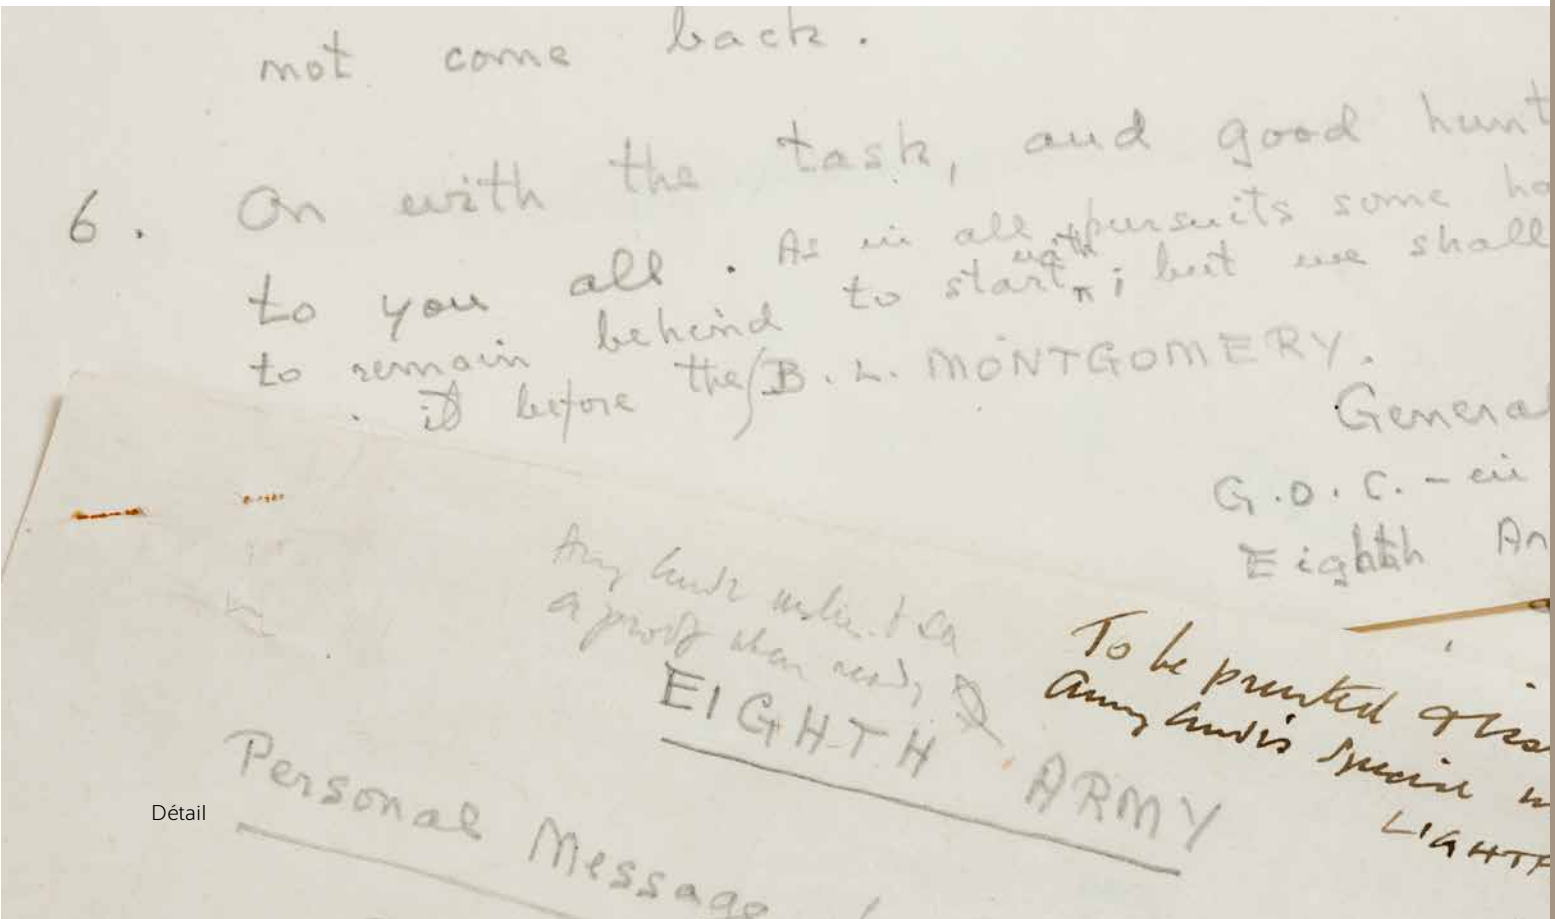 not come back.
6. On with the task, and good hunt
to you all. As in all pursuits some ha
to remain behind to start with; but we shall
it before the
B. L. MONTGOMERY.
General
G.O.C.-in
Eighth Ar
a proof when ready
To be printed
Army
special
LIGHTF
EIGHTH ARMY
Personal Message
Détail